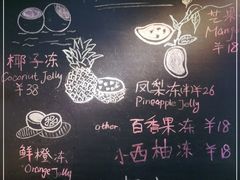 芒果
Mang
¥18
椰子冻
Coconut Jelly
¥38
凤梨冻
半26
Pineapple Jelly
other
百香果冻 ¥18
鲜橙冻
Orange Jelly
小西柚冻 ¥18